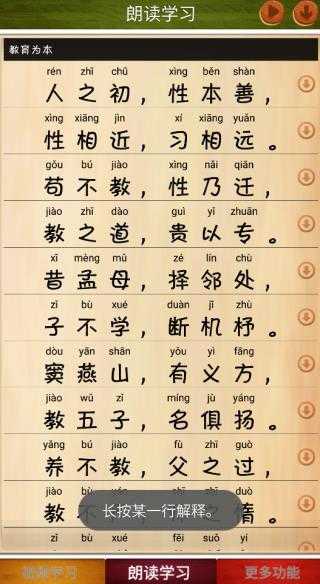 朗读学习
教育为本
rén zhī chū xìng běn shàn
人之初，性本善，
xìng xiāng jìn xí xiāng yuǎn
性相近，习相远。
gǒu bú jiào xìng nǎi qiān
苟不教，性乃迁，
jiào zhī dào guì yǐ zhuān
教之道，贵以专。
xī mèng mǔ zé lín chù
昔孟母，择邻处，
zǐ bù xué duàn jī zhù
子不学，断机杼。
dòu yān shān yǒu yì fāng
窦燕山，有义方，
jiào wǔ zǐ míng jù yáng
教五子，名俱扬。
yǎng bú jiào fù zhī guò
养不教，父之过，
jiào bù duò
教 惰。
长按某一行解释。
zǐ bù xué fēi suǒ yí
朗读学习
更多功能